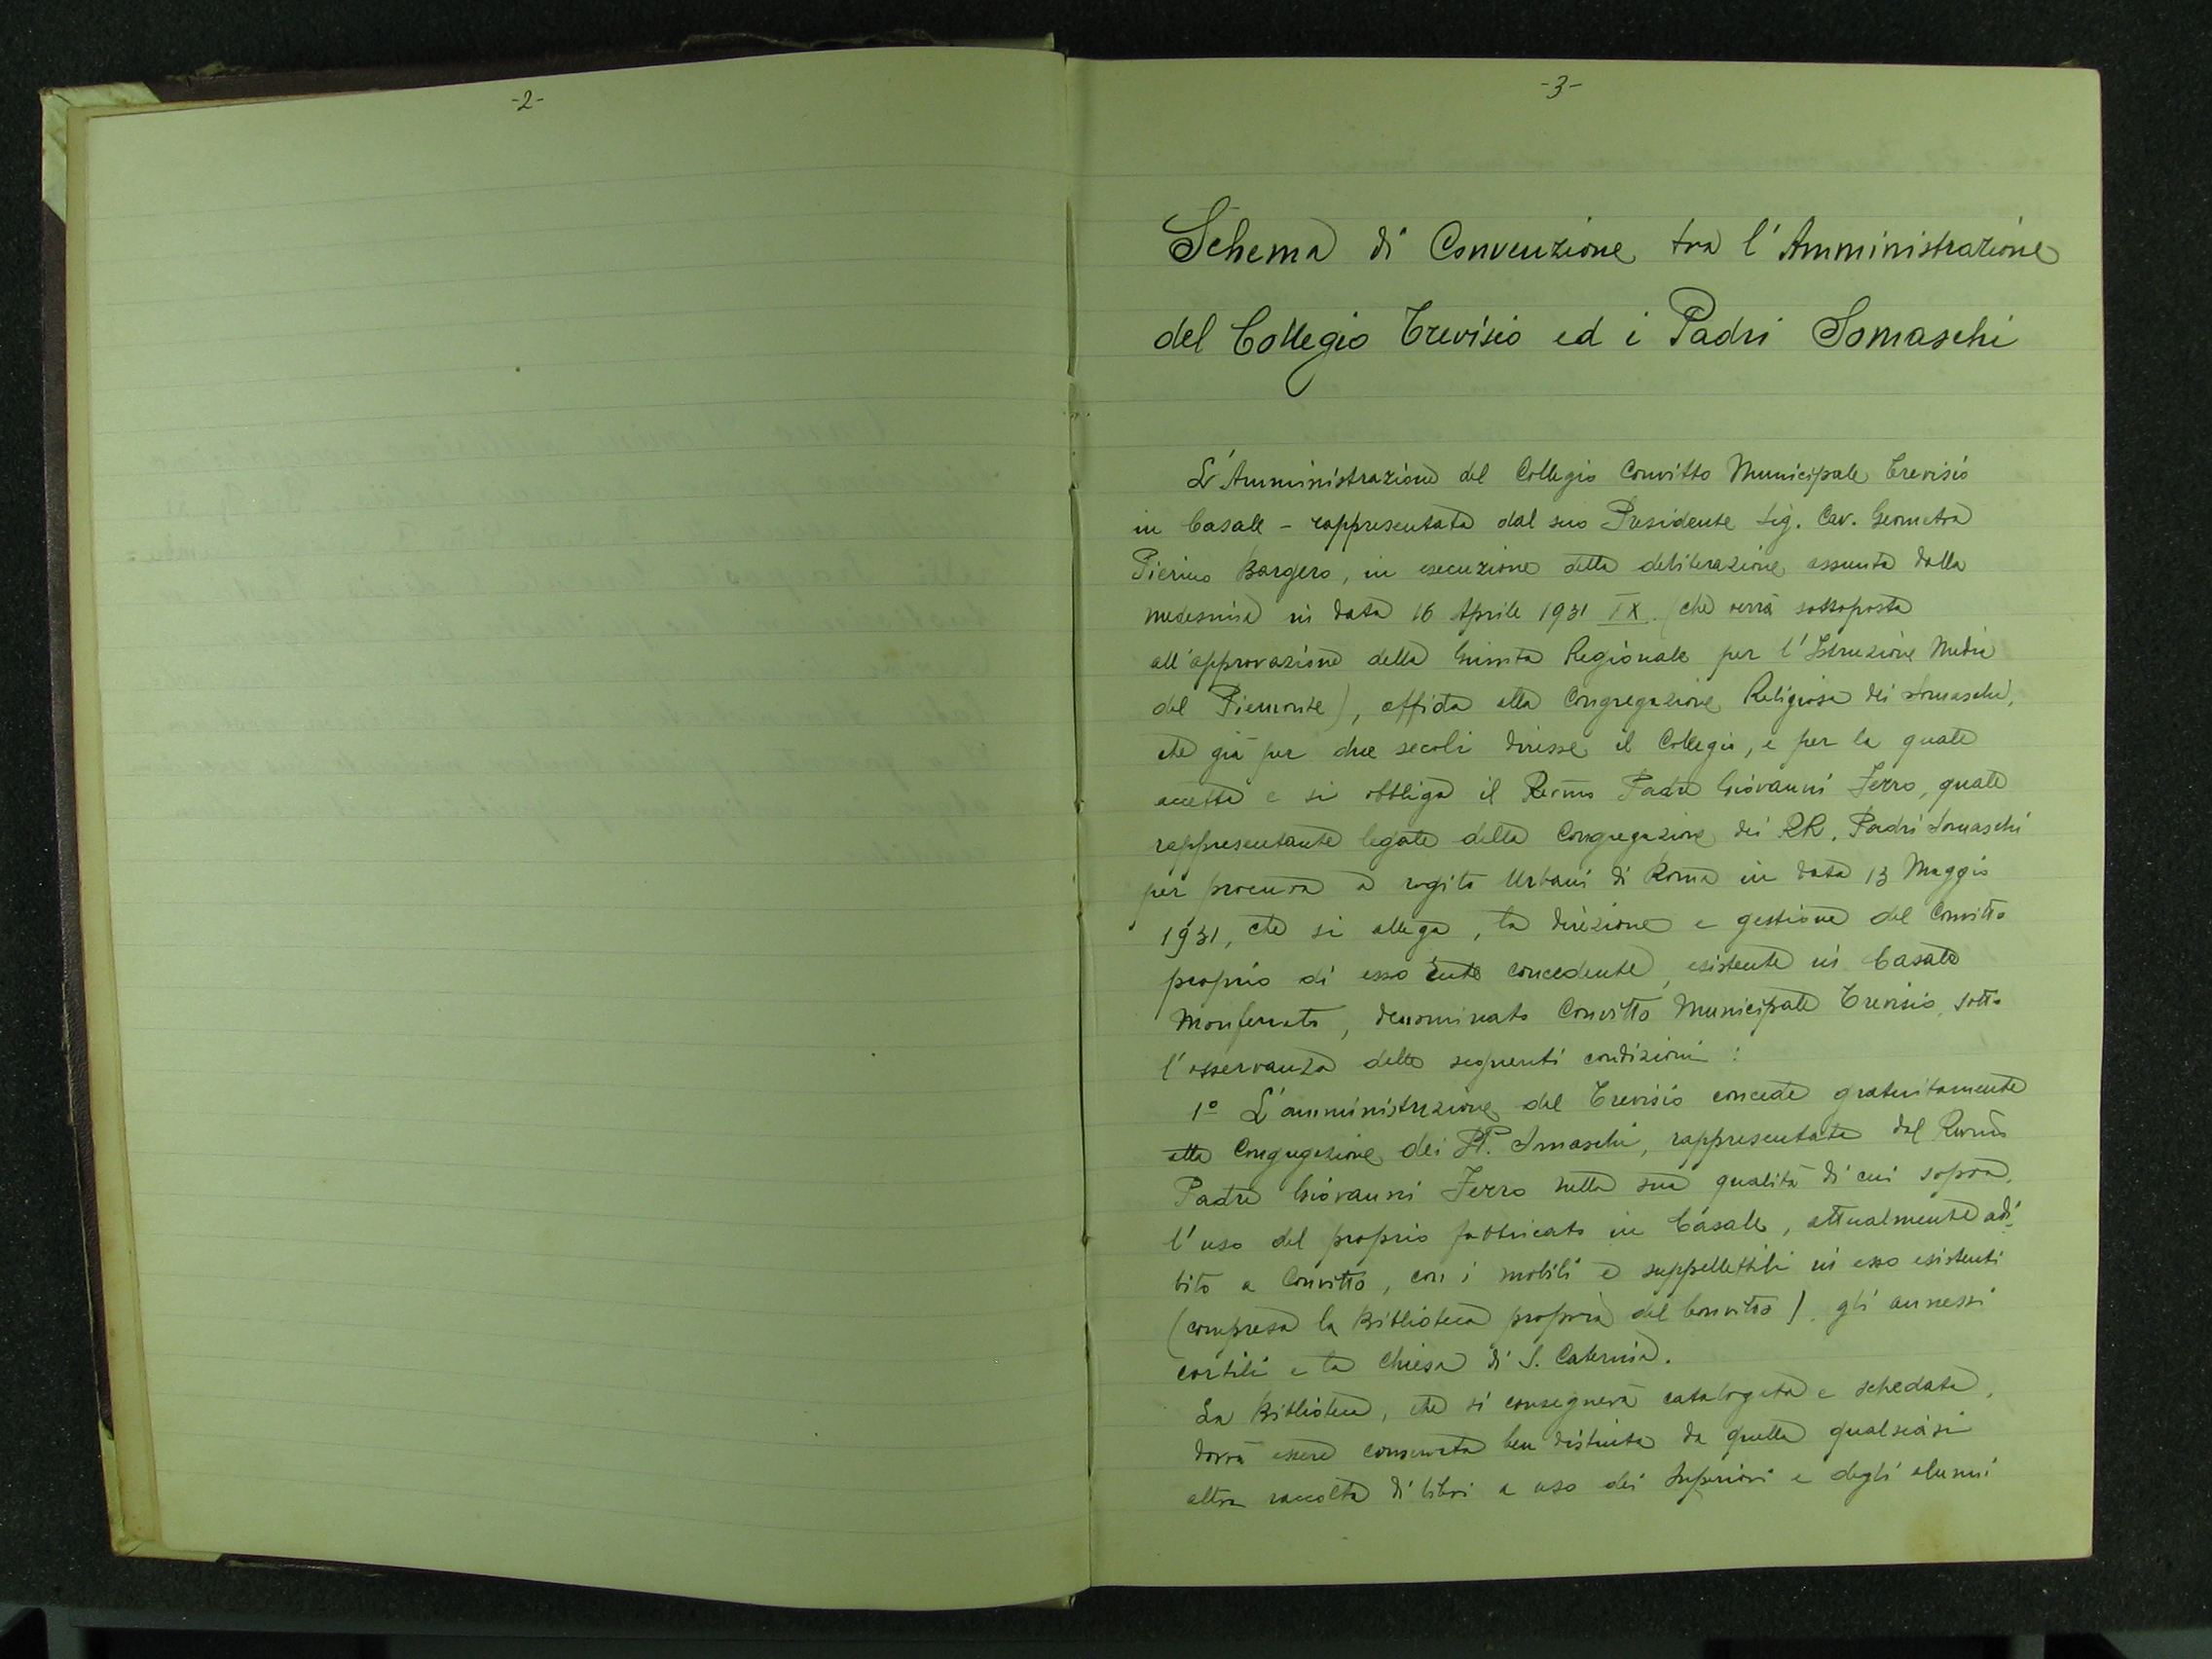 -2-
-3-
Schema di Convenzione tra l'Amministrazione
del Collegio Trevisio ed i Padri Somaschi
L'Amministrazione del Collegio Convitto Municipale Trevisio
in Casale - rappresentata dal suo Presidente Sig. Cav. Geometra
Pierino Bargero, in esecuzione della deliberazione assunta dalla
medesima in data 16 Aprile 1931 IX. (che verrà sottoposta
all'approvazione della Giunta Regionale per l'Istruzione Media
del Piemonte), affida alla Congregazione Religiosa dei Somaschi,
che già per due secoli diresse il Collegio, e per la quale
accetta e si obbliga il Rev̄mo Padre Giovanni Ferro, quale
rappresentante legale della Congregazione dei RR. Padri Somaschi
per procura a rogito Urbani di Roma in data 13 Maggio
1931, che si allega, la direzione e gestione del Convitto
proprio di esso Ente concedente, esistente in Casale
Monferrato, denominato Convitto Municipale Trevisio, sotto
l'osservanza delle seguenti condizioni:
1º L'amministrazione del Trevisio concede gratuitamente
alla Congregazione dei PP. Somaschi, rappresentata dal Rev̄mo
Padre Giovanni Ferro nella sua qualità di cui sopra,
l'uso del proprio fabbricato in Casale, attualmente adi-
bito a Convitto, con i mobili e suppellettili in esso esistenti
(compresa la Biblioteca propria del Convitto), gli annessi
cortili e la Chiesa di S. Caterina.
La Biblioteca, che si consegnerà catalogata e schedata,
dovrà essere conservata ben distinta da quella qualsiasi
altra raccolta di libri a uso dei Superiori e degli alunni